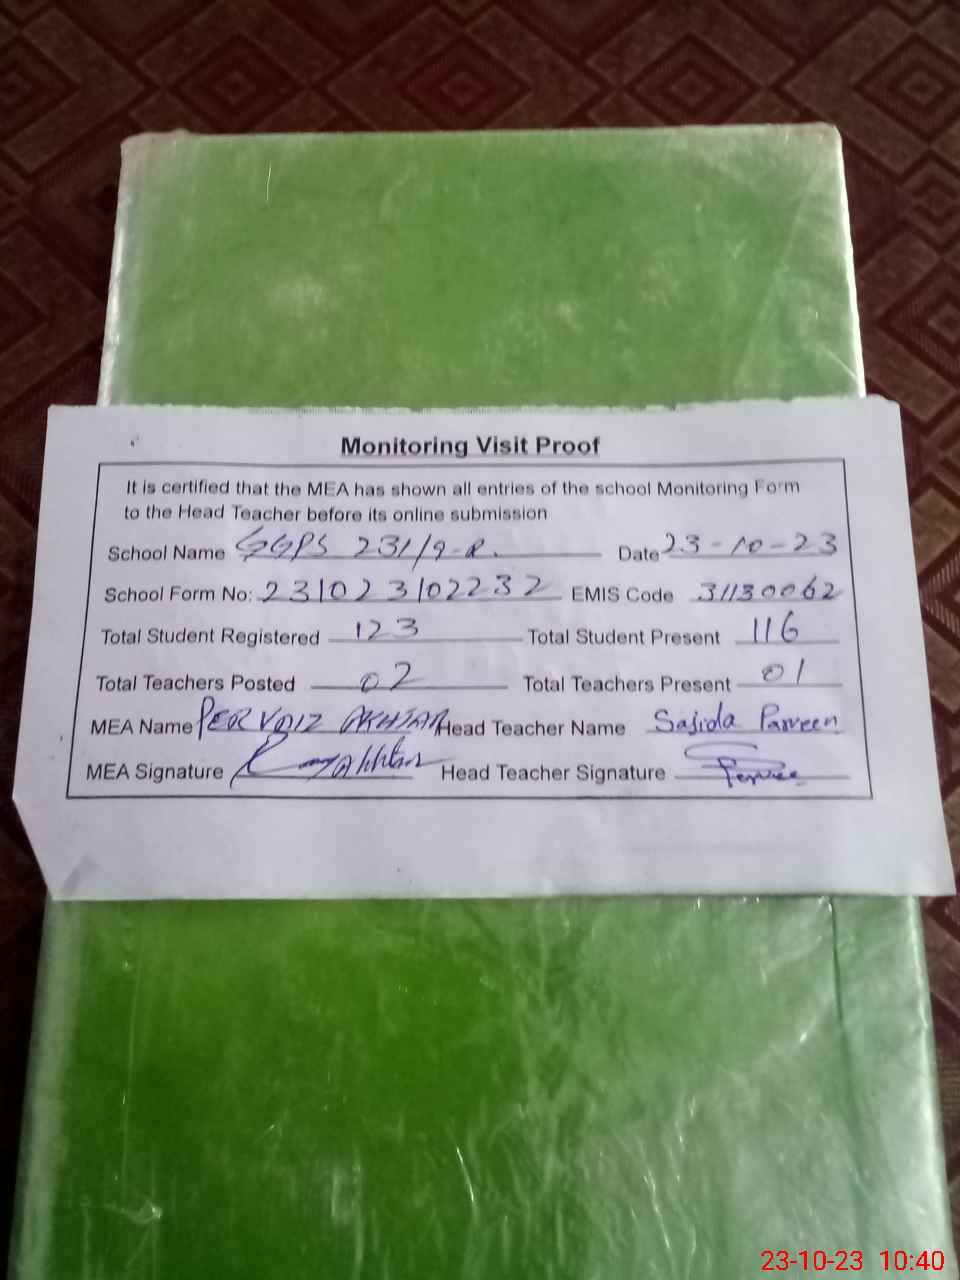 Monitoring Visit Proof
It is certified that the MEA has shown all entries of the school Monitoring Form
to the Head Teacher before its online submission
School Name GGPS 231/9-R. Date 23-10-23
School Form No: 231023102232 EMIS Code 31130062
Total Student Registered 123 Total Student Present 116
Total Teachers Posted 02 Total Teachers Present 01
MEA Name PERVAIZ AKHTAR Head Teacher Name Sajida Parveen
MEA Signature Akhtar Head Teacher Signature
23-10-23 10:40